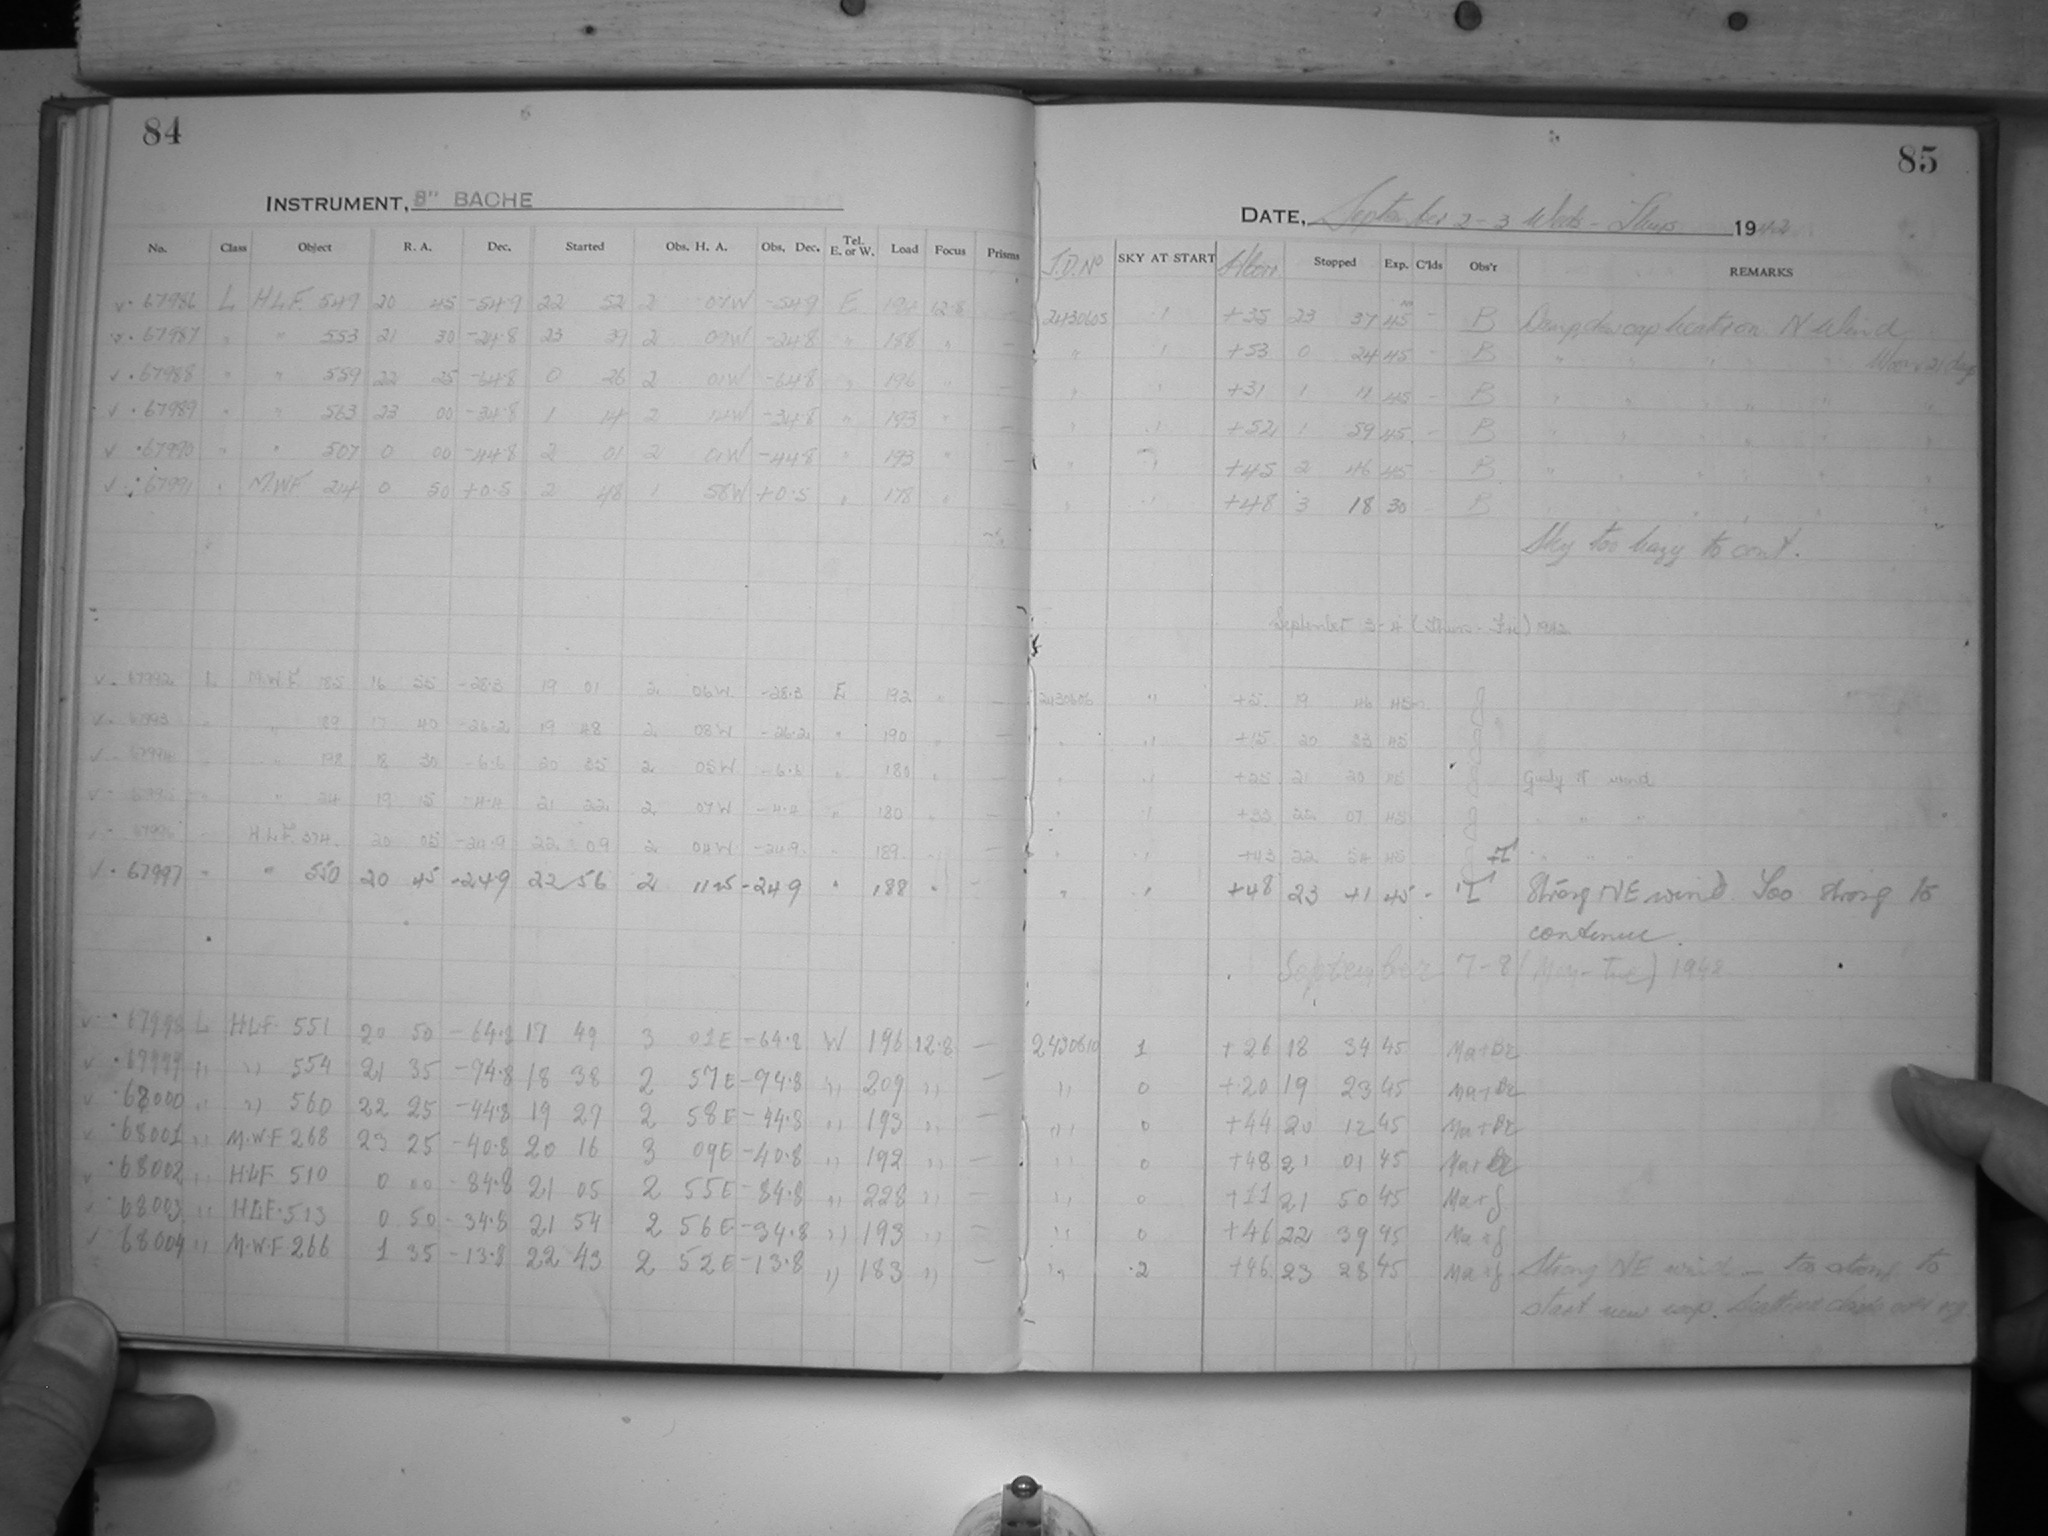 84
INSTRUMENT, 8" BACHE
No. Class Object R. A. Dec. Started Obs. H. A. Obs. Dec. Tel. E. or W. Load Focus Prisms
67986 L H.L.F. 549 20 45 -54.9 22 52 2 07W -54.9 E 190 12.8 —
67987 " " 553 21 30 -24.8 23 39 2 09W -24.8 " 188 " —
67988 " " 559 22 25 -64.8 0 26 2 01W -64.8 " 196 " —
67989 " " 563 23 00 -34.8 1 14 2 14W -34.8 " 193 " —
67990 " " 507 0 00 -44.8 2 01 2 01W -44.8 " 193 " —
67991 " M.W.F. 214 0 50 +0.5 2 48 1 58W +0.5 " 178 "
67992 L M.W.F. 185 16 55 -28.3 19 01 2 06W -28.3 E 192 " —
67993 " " 89 17 40 -26.2 19 48 2 08W -26.2 " 190 " —
" 18 30 -6.6 20 35 2 05W -6.6 " 180 " —
" 24 19 15 -4.4 21 22 2 07W -4.4 " 180 " —
67996 H.L.F. 574 20 05 -24.9 22 09 2 04W -24.9 189 —
67997 " " 550 20 45 -24.9 22 56 2 11 -24.9 " 188 " —
67998 L HLF. 551 20 50 -64.8 17 49 3 01E -64.8 W 196 12.8 —
67999 " " 554 21 35 -74.8 18 38 2 57E -74.8 " 209 " —
68000 " " 560 22 25 -44.8 19 27 2 58E -44.8 " 193 " —
68001 " M.W.F 268 23 25 -40.8 20 16 3 09E -40.8 " 192 " —
68002 " HLF 510 0 00 -84.8 21 05 2 55E -84.8 " 228 " —
68003 " HLF. 513 0 50 -34.8 21 54 2 56E -34.8 " 193 " —
68004 " M.W.F 266 1 35 -13.8 22 43 2 52E -13.8 " 183 " —
85
DATE, September 2-3 Weds-Thurs 1942
J.D. No SKY AT START Stopped Exp. C'lds Obs'r REMARKS
2430605 1 +35 23 37 45 - B Damp, dewcap heat on. N Wind
" 1 +53 0 24 45 - B " Moon 21 days
" 1 +31 1 11 45 - B
" 1 +52 1 59 45 - B
" 1 +45 2 46 45 - B
" 1 +48 3 18 30 B
Sky too hazy to cont.
September 3-4 (Thurs-Fri) 1942
2430606 " +5 19 46 45 J
" " +15 20 33 45 J
" " +25 21 20 45 J Gusty N wind
" " +33 22 07 45 J
" " +43 22 54 45
" 1 +48 23 41 45 - T Strong NE wind. Too strong to
continue.
September 7-8 (Mon-Tue) 1942
2430610 1 +26 18 34 45 Ma+Br
" 0 +20 19 23 45 Ma+Br
" 0 +44 20 12 45 Ma+Br
" 0 +48 21 01 45 Ma+Br
" 0 +11 21 50 45 Ma+J
" 0 +46 22 39 45 Ma+J
" 2 +46 23 28 45 Ma+J Strong NE wind — too strong to
start new exp.